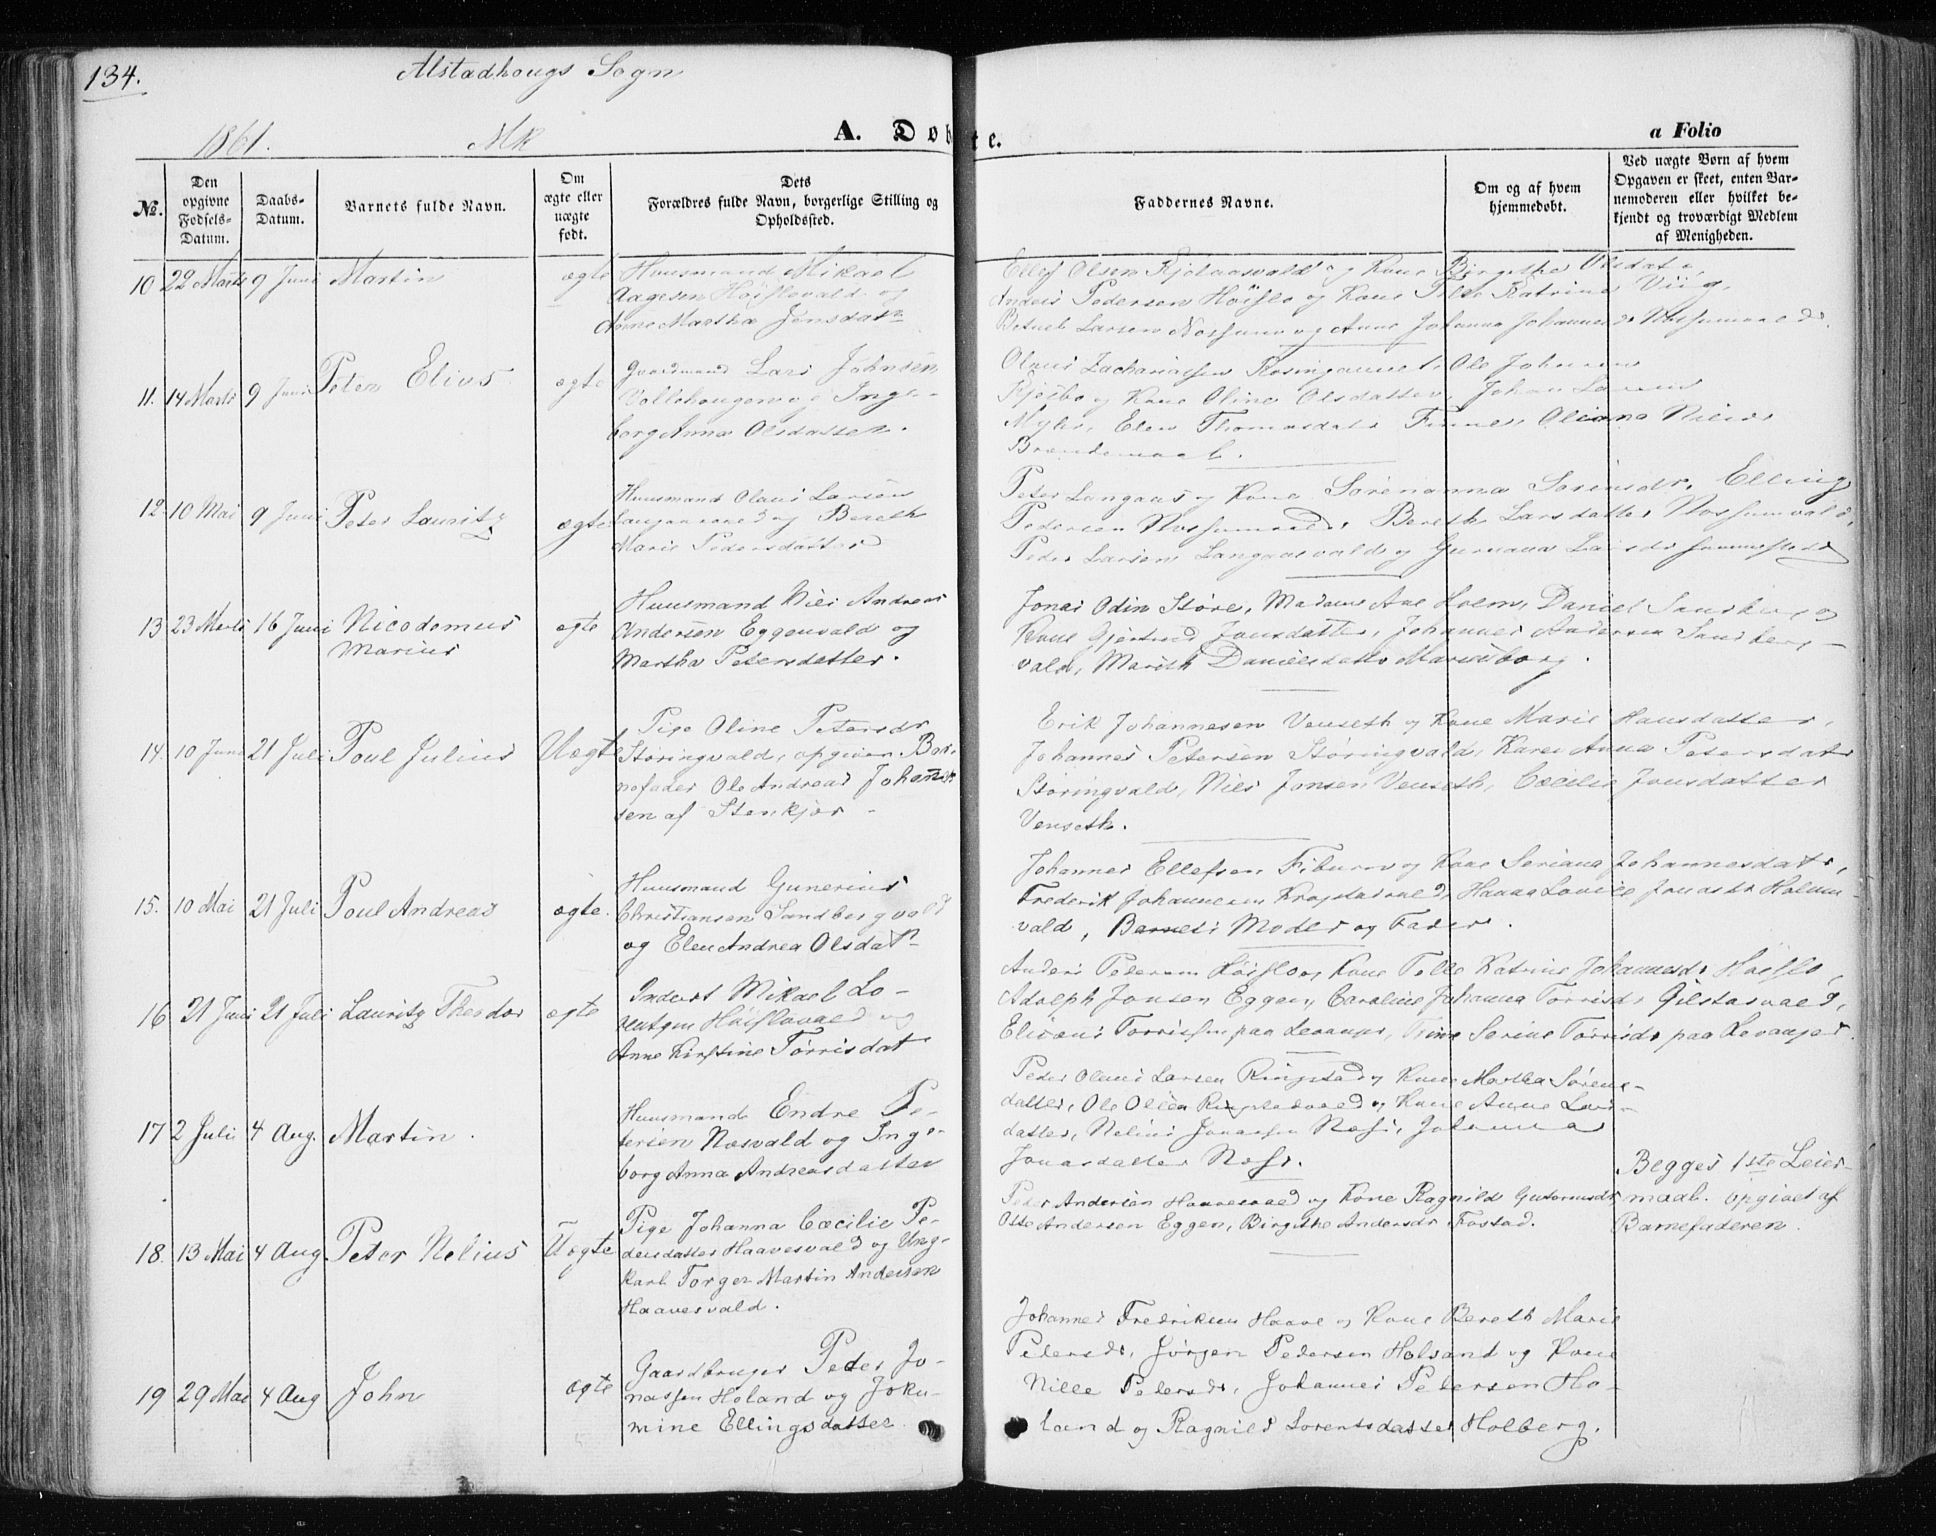 134.
Alstadhougs Sogn
1861.
Mk
A. Døbte.
a Folio
No.
Den opgivne Fødsels-Datum.
Daabs-Datum.
Barnets fulde Navn.
Om ægte eller uægte født.
Dets Forældres fulde Navn, borgerlige Stilling og Opholdssted.
Faddernes Navne.
Om og af hvem hjemmedøbt.
Ved uægte Børn af hvem Opgaven er skeet, enten Barnemoderen eller hvilket bekjendt og troværdigt Medlem af Menigheden.
10 22 Marts 9 Juni Martin ægte
Huusmand Mikael
Aagesen Höiflovald og
Anne Martha Jönsdatr
Ellef Olsen og Kone Birgithe Olsdatr,
Anders Pedersen Höiflo og Kone Katrine Viig,
Larsen Nossum og Anne Johanna
11. 14 Marts 9 Juni Peter Elius ægte
Gaardmand Lars Johnsen
Vollehougen og Inge-
borg Anna Olsdatter.
Olaus Zachariassen Ole Johnsen
og Kone Oline Olsdatter, Johan Larsen
Myhr, Elen Thomasdatr Oliana Niels
12 10 Mai 9 Juni Peter Lauritz ægte
Huusmand Olaus Larsen
og Bereth
Marie Pedersdatter
Peter Langaas og Kone Sörenanna Sörensdr, Elling
Pedersen Bereth Larsdatter Nossumvald,
Peder Larsen Langaasvald og Larsdr sammesteds
13 23 Marts 16 Juni Nicodemus
Marius
ægte
Huusmand Niels Andreas
Andersen Eggenvald og
Martha Petersdatter.
Jonas Odin Störe, Madame Ane Holm, Daniel Sandberg og
Kone Gjertrud Jonsdatter, Johannes Andersen Sandberg-
vald, Marith Danielsdatter Marienborg.
14. 10 Juni 21 Juli Poul Julius Uægte
Pige Oline Petersdr
Störingvald, opgiven Bar-
nefader Ole Andreas Johannes
sen af Stenkjær -
Erik Johannesen Venseth og Kone Marie Hansdatter,
Johannes Petersen Störingvald, Karen Anna Petersdatr
Störingvald, Niels Jonsen Venseth, Cæcilie Jonsdatter
Venseth.
15. 10 Mai 21 Juli Poul Andreas ægte.
Huusmand Gunerius
Christiansen Sandbergvald
og Elen Andrea Olsdatr
Johannes Ellefsen Fiburn og Kone Seriana Johannesdatr,
Frederik Johannesen Hanna Lovise Jonasdr Holum-
vald, Barnets Moder og Fader.
16 21 Juni 21 Juli Lauritz Theodor ægte
Inderst Mikael Lo-
rentsen Höiflovald og
Anne Kirstine Torrisdatr
Anders Pedersen Höiflo og Kone Katrine Johannesdr Höiflo,
Adolph Jonsen Eggen, Caroline Johanna Torrisdr Gilstasvald,
Torrissen paa Levanger, Trine Serine Torrisdr paa Levanger.
17 2 Juli 4 Aug. Martin.
Huusmand Endre Pe-
tersen Næsvald og Inge-
borg Anna Andreasdatter
Peder Olaus Larsen Ringstad og Kone Martha Sörens-
datter, Ole Olsen og Kone Anne Lars-
datter, Nelius Jonassen Næss, Johanna
Jonasdatter Næss.
18. 13 Mai 4 Aug Peter Nelius Uægte
Pige Johanna Cæcilie Pe-
dersdatter Haavesvald og Ung-
karl Torger Martin Andersen
Haavesvald.
Peder Andersen Haavesvald og Kone Ragnild Guttormsdr,
Otto Andersen Eggen, Birgithe Andersdr Fostad.
Begges 1ste Leier-
maal. opgivet af
Barnefaderen.
19 29 Mai 4 Aug John ægte
Gaardbruger Peder Jo-
nassen Holand og Joku-
mine Ellingsdatter.
Johannes Fredriksen Haave og Kone Bereth Marie
Petersdr, Jörgen Pedersen Holsand og Kone
Nille Petersdr, Johannes Petersen Ho-
land og Ragnild Lorentsdatter Holberg.